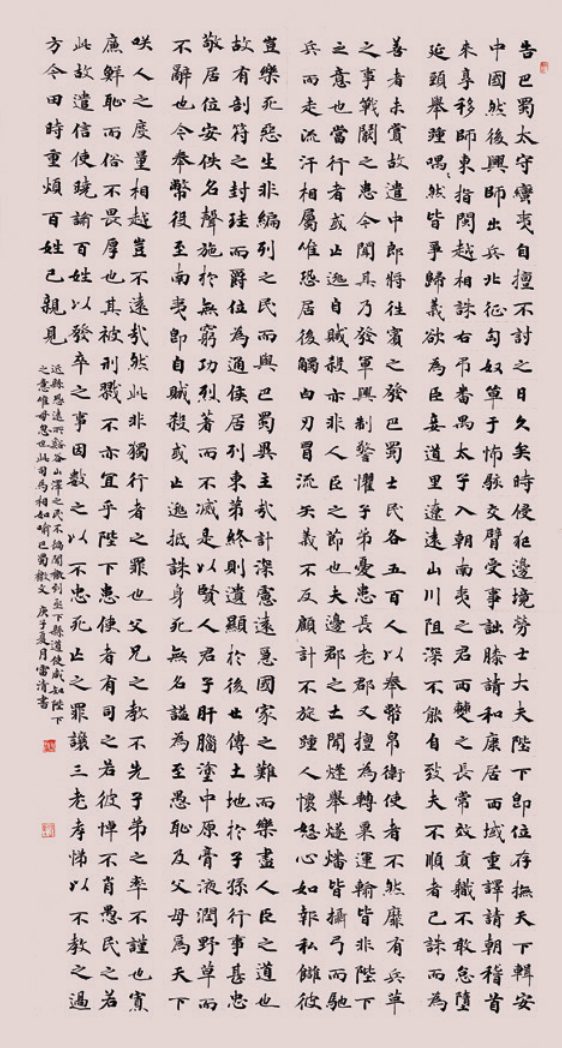 告巴蜀太守蠻夷自擅不討之日久矣時侵犯邊境勞士大夫陛下即位存撫天下輯安
中國然後興師出兵北征匈奴單于怖駭交臂受事詘膝請和康居西域重譯請朝稽首
來享移師東指閩越相誅右弔番禺太子入朝南夷之君西僰之長常效貢職不敢怠墮
延頸舉踵喁々然皆爭歸義欲為臣妾道里遼遠山川阻深不能自致夫不順者已誅而為
善者未賞故遣中郎將往賓之發巴蜀士民各五百人以奉幣帛衛使者不然靡有兵革
之事戰鬭之患今聞其乃發軍興制警懼子弟憂患長老郡又擅為轉粟運輸皆非陛下
之意也當行者或亡逃自賊殺亦非人臣之節也夫邊郡之士聞烽舉燧燔皆攝弓而馳
兵而走流汗相屬唯恐居後觸白刃冒流矢義不反顧計不旋踵人懷怒心如報私讎彼
豈樂死惡生非編列之民而與巴蜀異主哉計深慮遠急國家之難而樂盡人臣之道也
故有剖符之封珪而爵位為通侯居列東第終則遺顯於後世傳土地於子孫行事甚忠
敬居位安佚名聲施於無窮功烈著而不滅是以賢人君子肝腦塗中原膏液潤野草而
不辭也今奉幣役至南夷即自賊殺或亡逃抵誅身死無名謚為至愚恥及父母為天下
咲人之度量相越豈不遠哉然此非獨行者之罪也父兄之教不先子弟之率不謹也寡
廉鮮恥而俗不長厚也其被刑戮不亦宜乎陛下患使者有司之若彼悼不肖愚民之若
此故遣信使曉諭百姓以發卒之事因數之以不忠死亡之罪讓三老孝悌以不教之過
方今田時重煩百姓已親見
近縣恐遠所谿谷山澤之民不徧聞檄到亟下縣道使咸知陛下
之意唯毋忽也此司馬相如喻巴蜀檄文 庚子夏月雷書